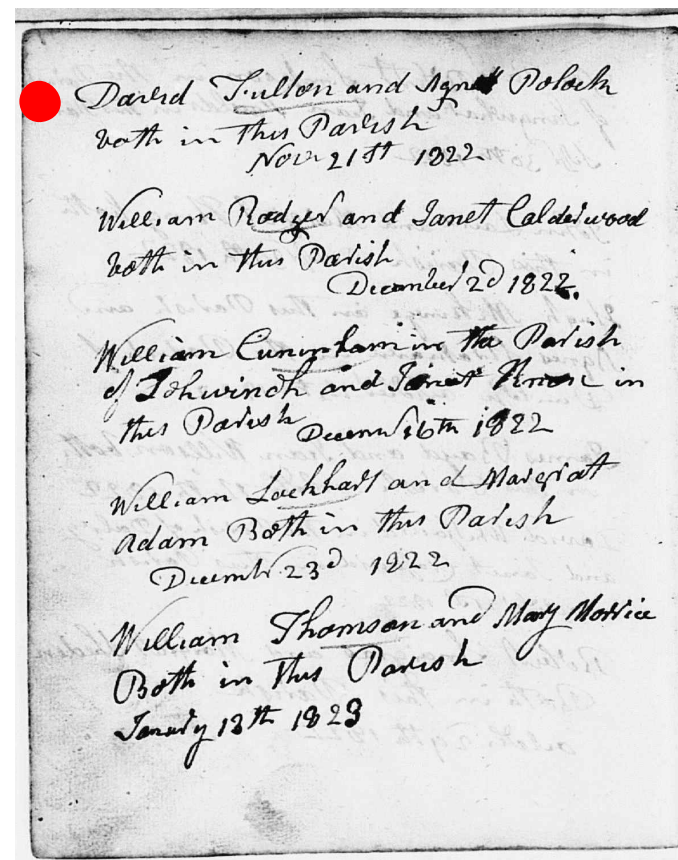 David Fulton and Agnes Polock
both in this Parish
Novr 21st 1822
William Rodger and Janet Calderwood
both in this Parish
December 2d 1822.
William Cuningham in the Parish
of and Janet Knox in
this Parish Decembr 6th 1822
William Lockhart and Margrat
Adam Both in this Parish
Decembr 23d 1822
William Thomson and Mary Morrice
Both in this Parish
Janury 13th 1823